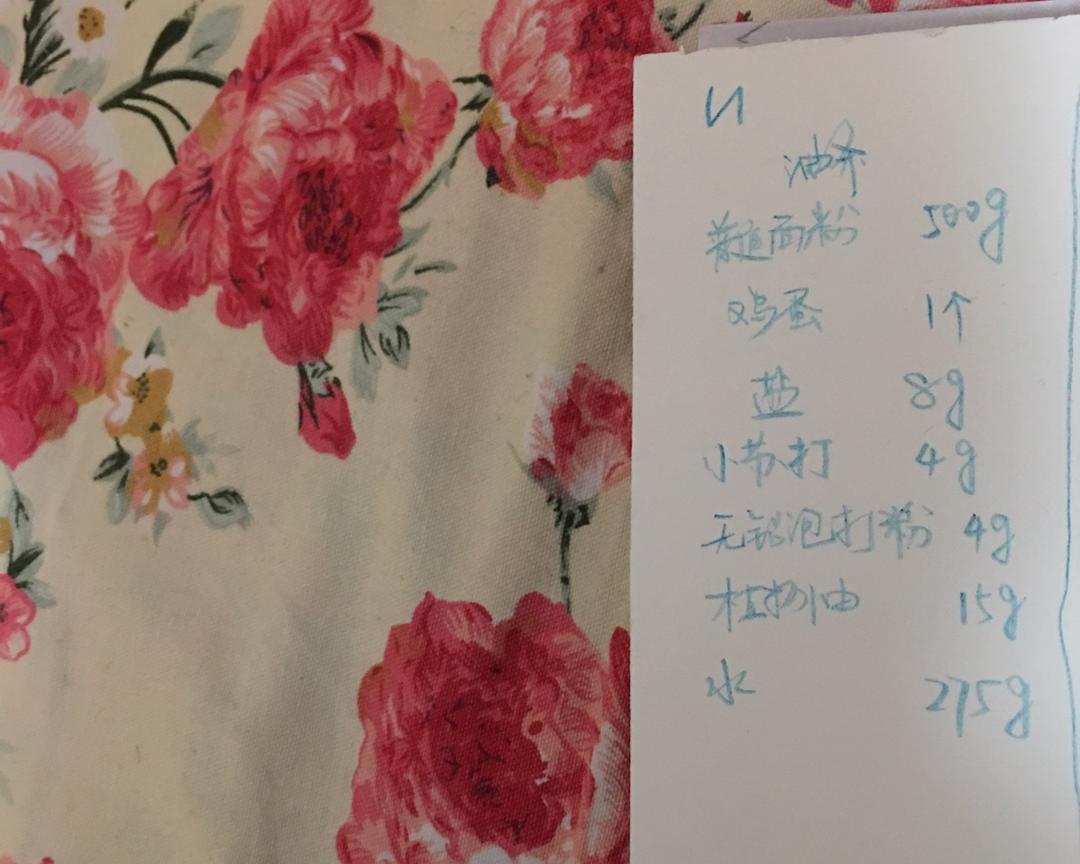 油条
普通面粉 500g
鸡蛋 1个
盐 8g
小苏打 4g
无铝泡打粉 4g
植物油 15g
水 275g